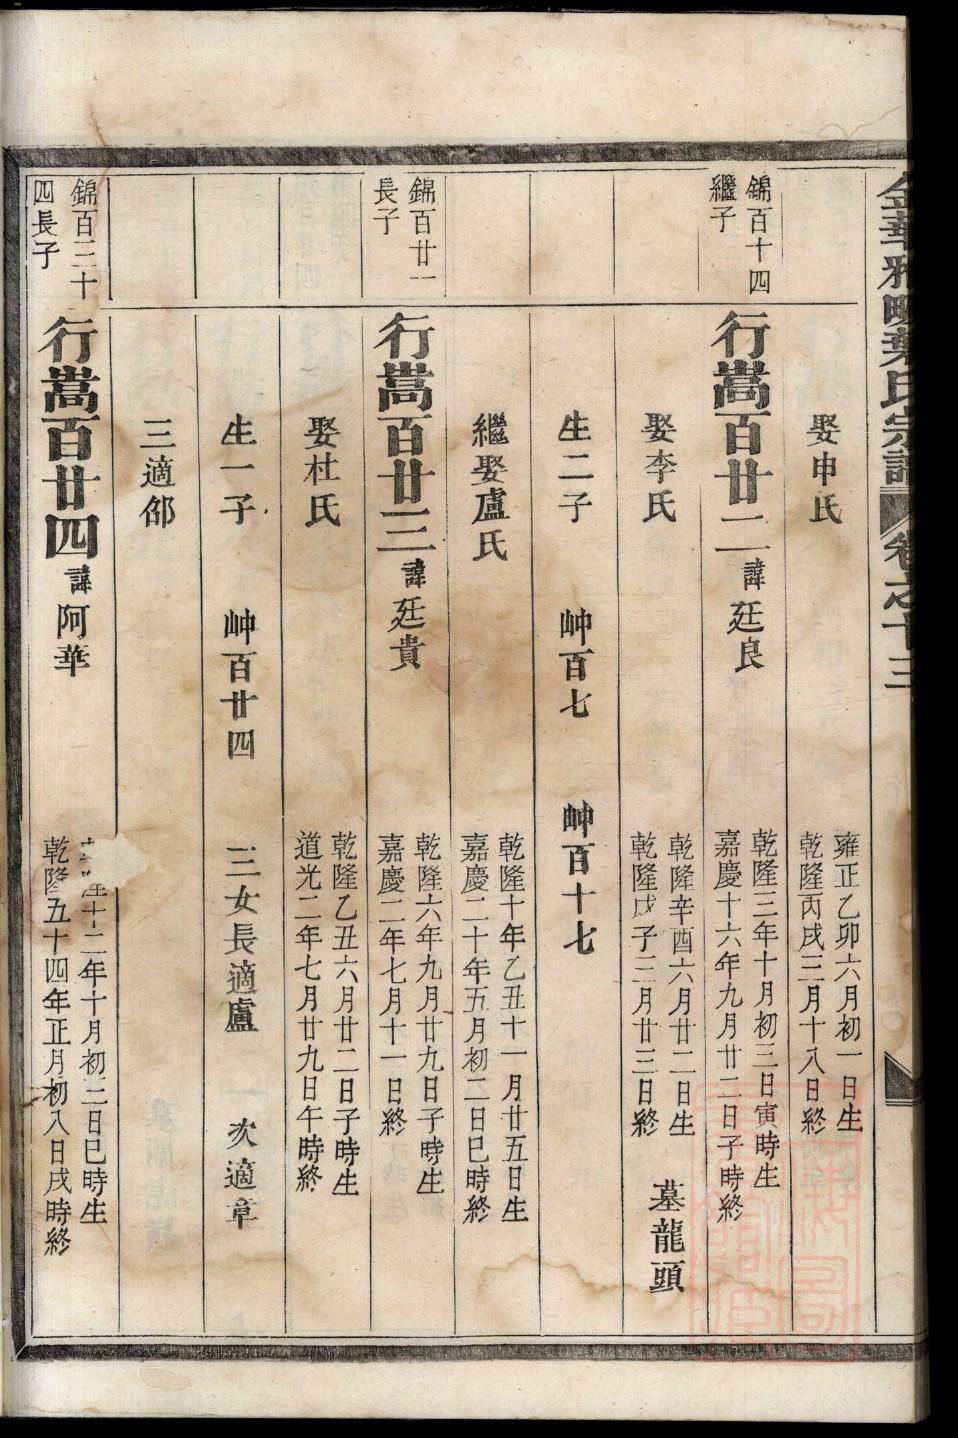 金華雅畈葉氏宗譜 卷之十三
娶申氏
雍正乙卯六月初一日生
乾隆丙戌三月十八日終
錦百十四
繼子
行嵩百廿二 諱廷良
乾隆三年十月初三日寅時生
嘉慶十六年九月廿二日子時終
娶李氏
乾隆辛酉六月廿二日生
乾隆戊子三月廿三日終
墓龍頭
生二子 艸百七 艸百十七
繼娶盧氏
乾隆十年乙丑十一月廿五日生
嘉慶二十年五月初二日巳時終
錦百廿一
長子
行嵩百廿三 諱廷貴
乾隆六年九月廿九日子時生
嘉慶二年七月十一日終
娶杜氏
乾隆乙丑六月廿二日子時生
道光二年七月廿九日午時終
生一子 艸百廿四 三女長適盧 次適章
三適邵
錦百三十
四長子
行嵩百廿四 諱阿華
隆十二年十月初三日巳時生
乾隆五十四年正月初八日戌時終